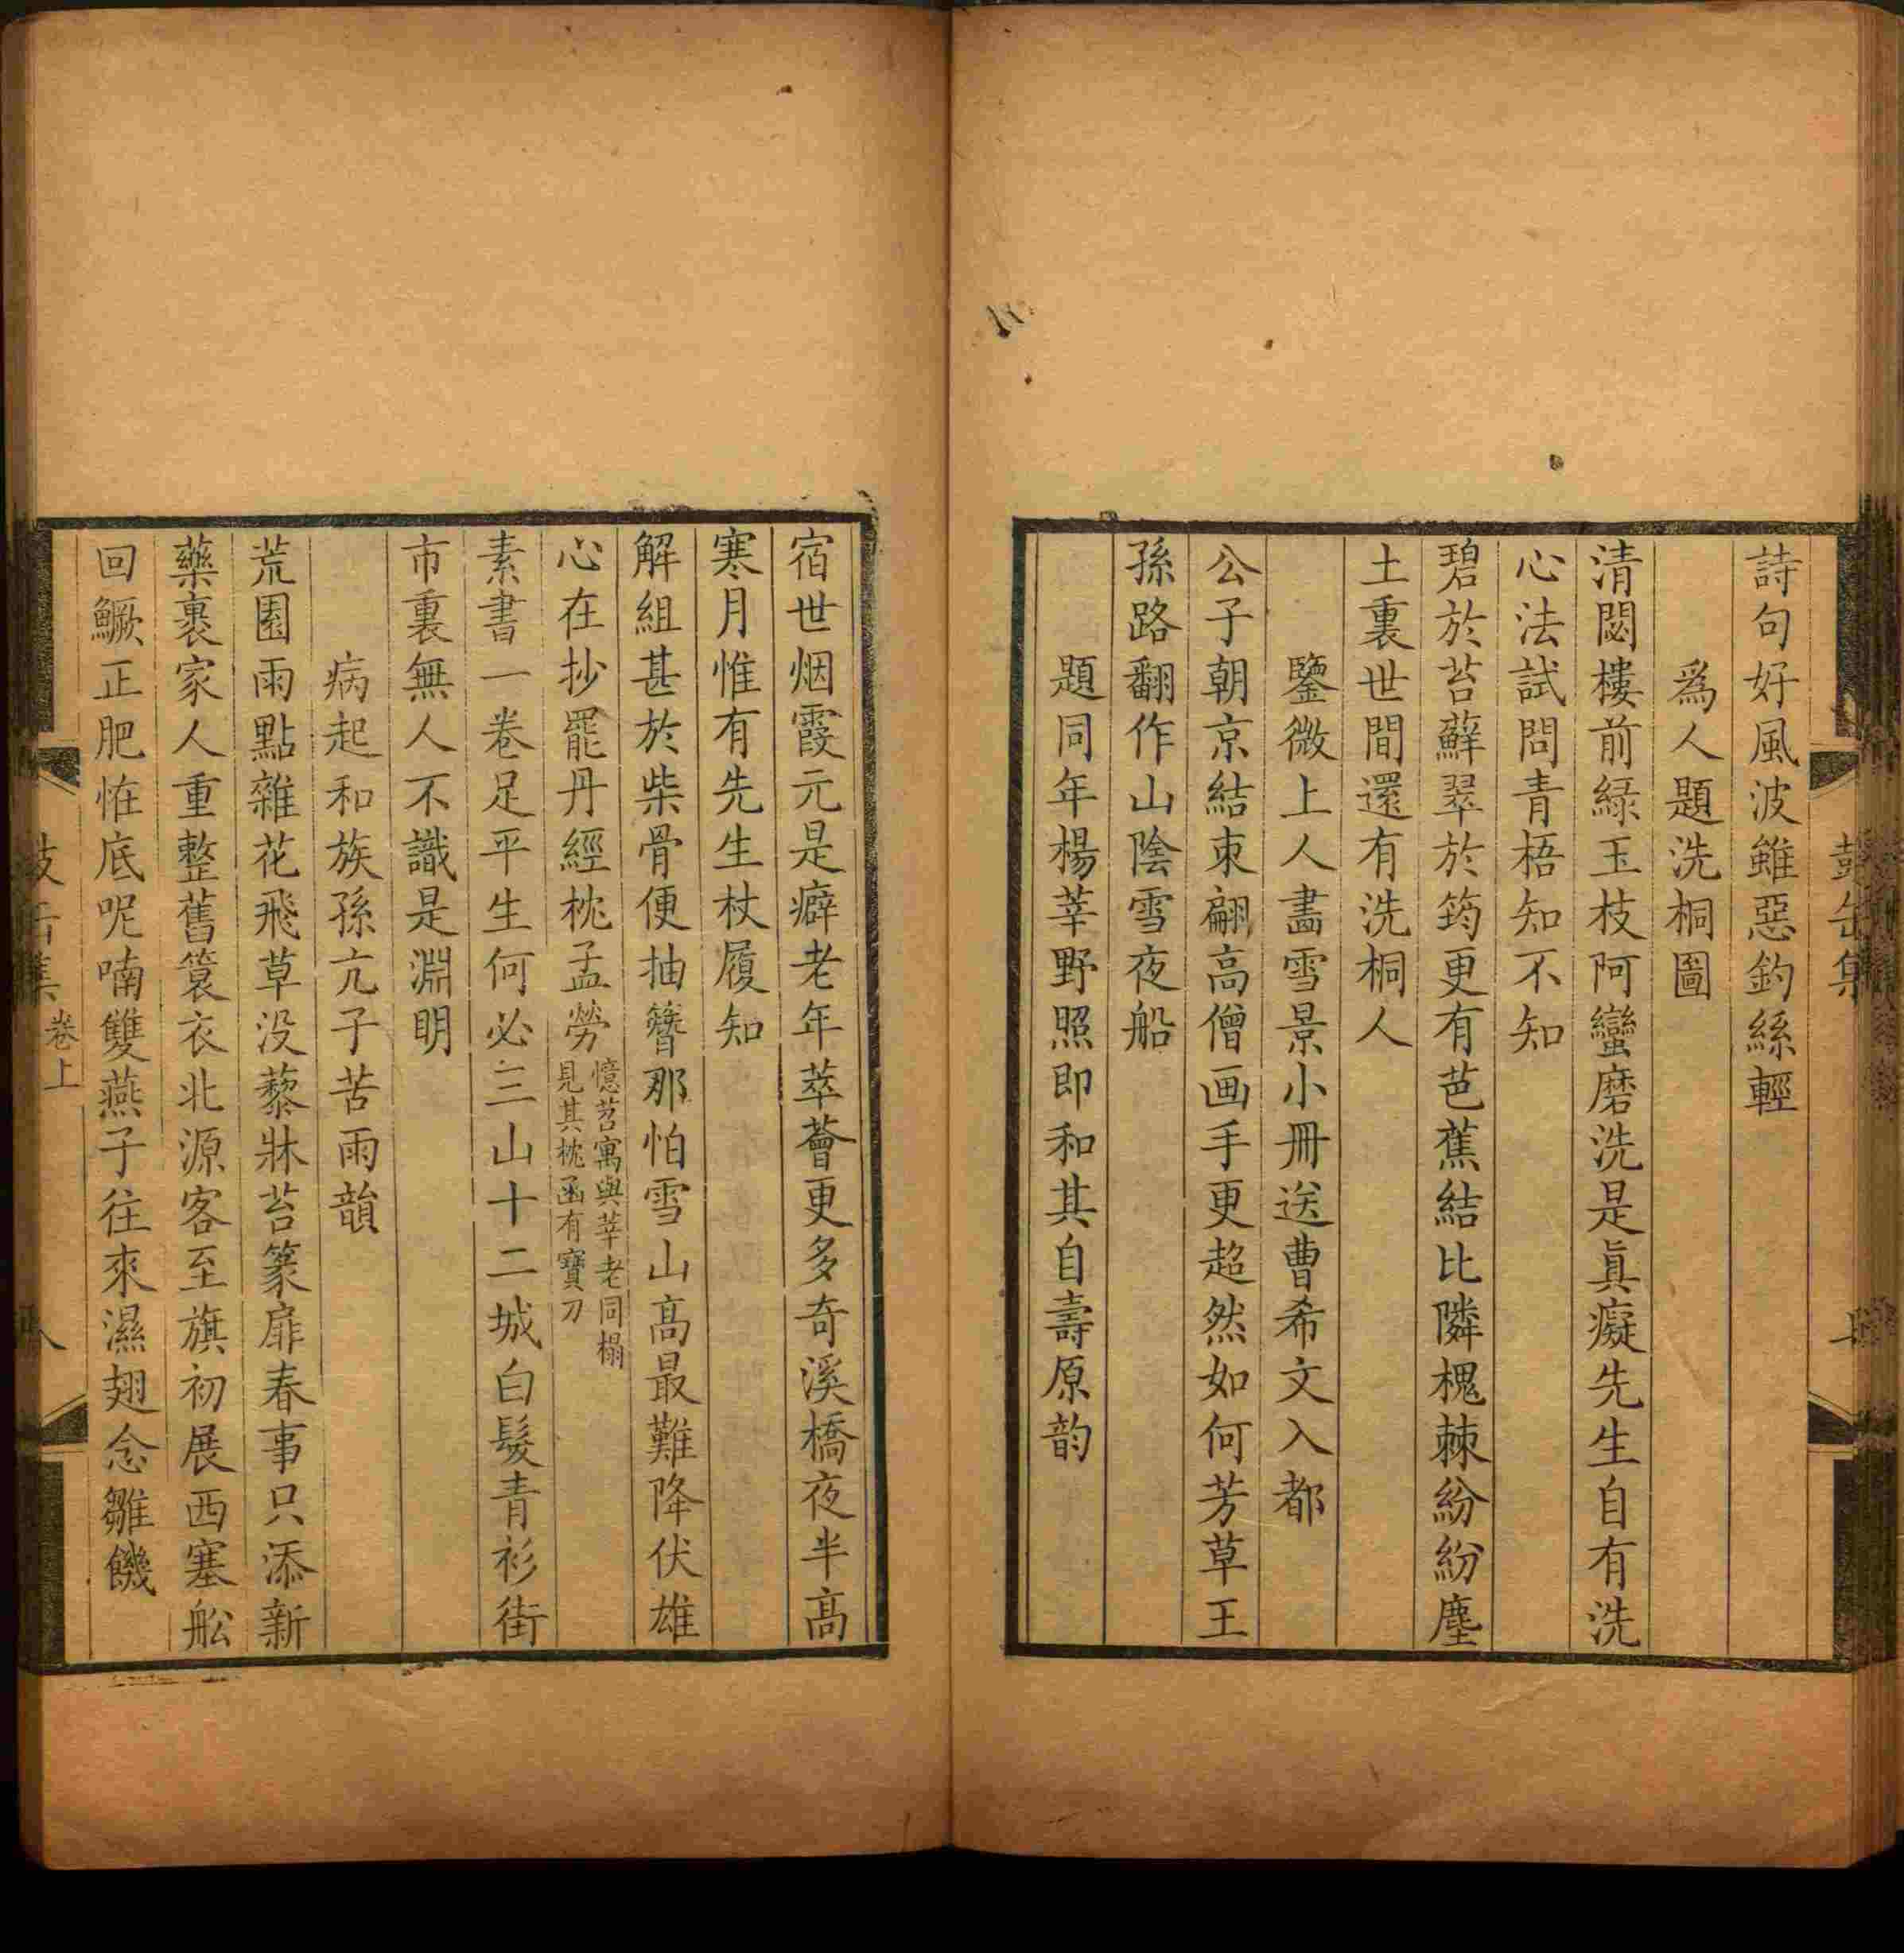 詩句好風波雖惡釣絲輕
爲人題洗桐圖
清閟樓前緑玉枝阿蠻磨洗是眞癡先生自有洗
心法試問青梧知不知
碧於苔蘚翠於筠更有芭蕉結比隣槐棘紛紛塵
土裏世間還有洗桐人
鑒微上人畵雪景小冊送曹希文入都
公子朝京結束翩高僧画手更超然如何芳草王
孫路翻作山陰雪夜船
題同年楊莘野照即和其自壽原韵
宿世烟霞元是癖老年萃薈更多奇溪橋夜半高
寒月惟有先生杖履知
解組甚於柴骨便抽簪那怕雪山高最難降伏雄
心在抄罷丹經枕孟勞憶苕寓與莘老同榻見其枕函有寶刀
素書一卷足平生何必三山十二城白髮青衫街
市裏無人不識是淵明
病起和族孫亢子苦雨韻
荒園雨點雜花飛草没藜牀苔篆扉春事只添新
藥裹家人重整舊簑衣北源客至旗初展西塞舩
回鱖正肥恠底呢喃雙燕子往來濕翅念雛饑
卷上
八